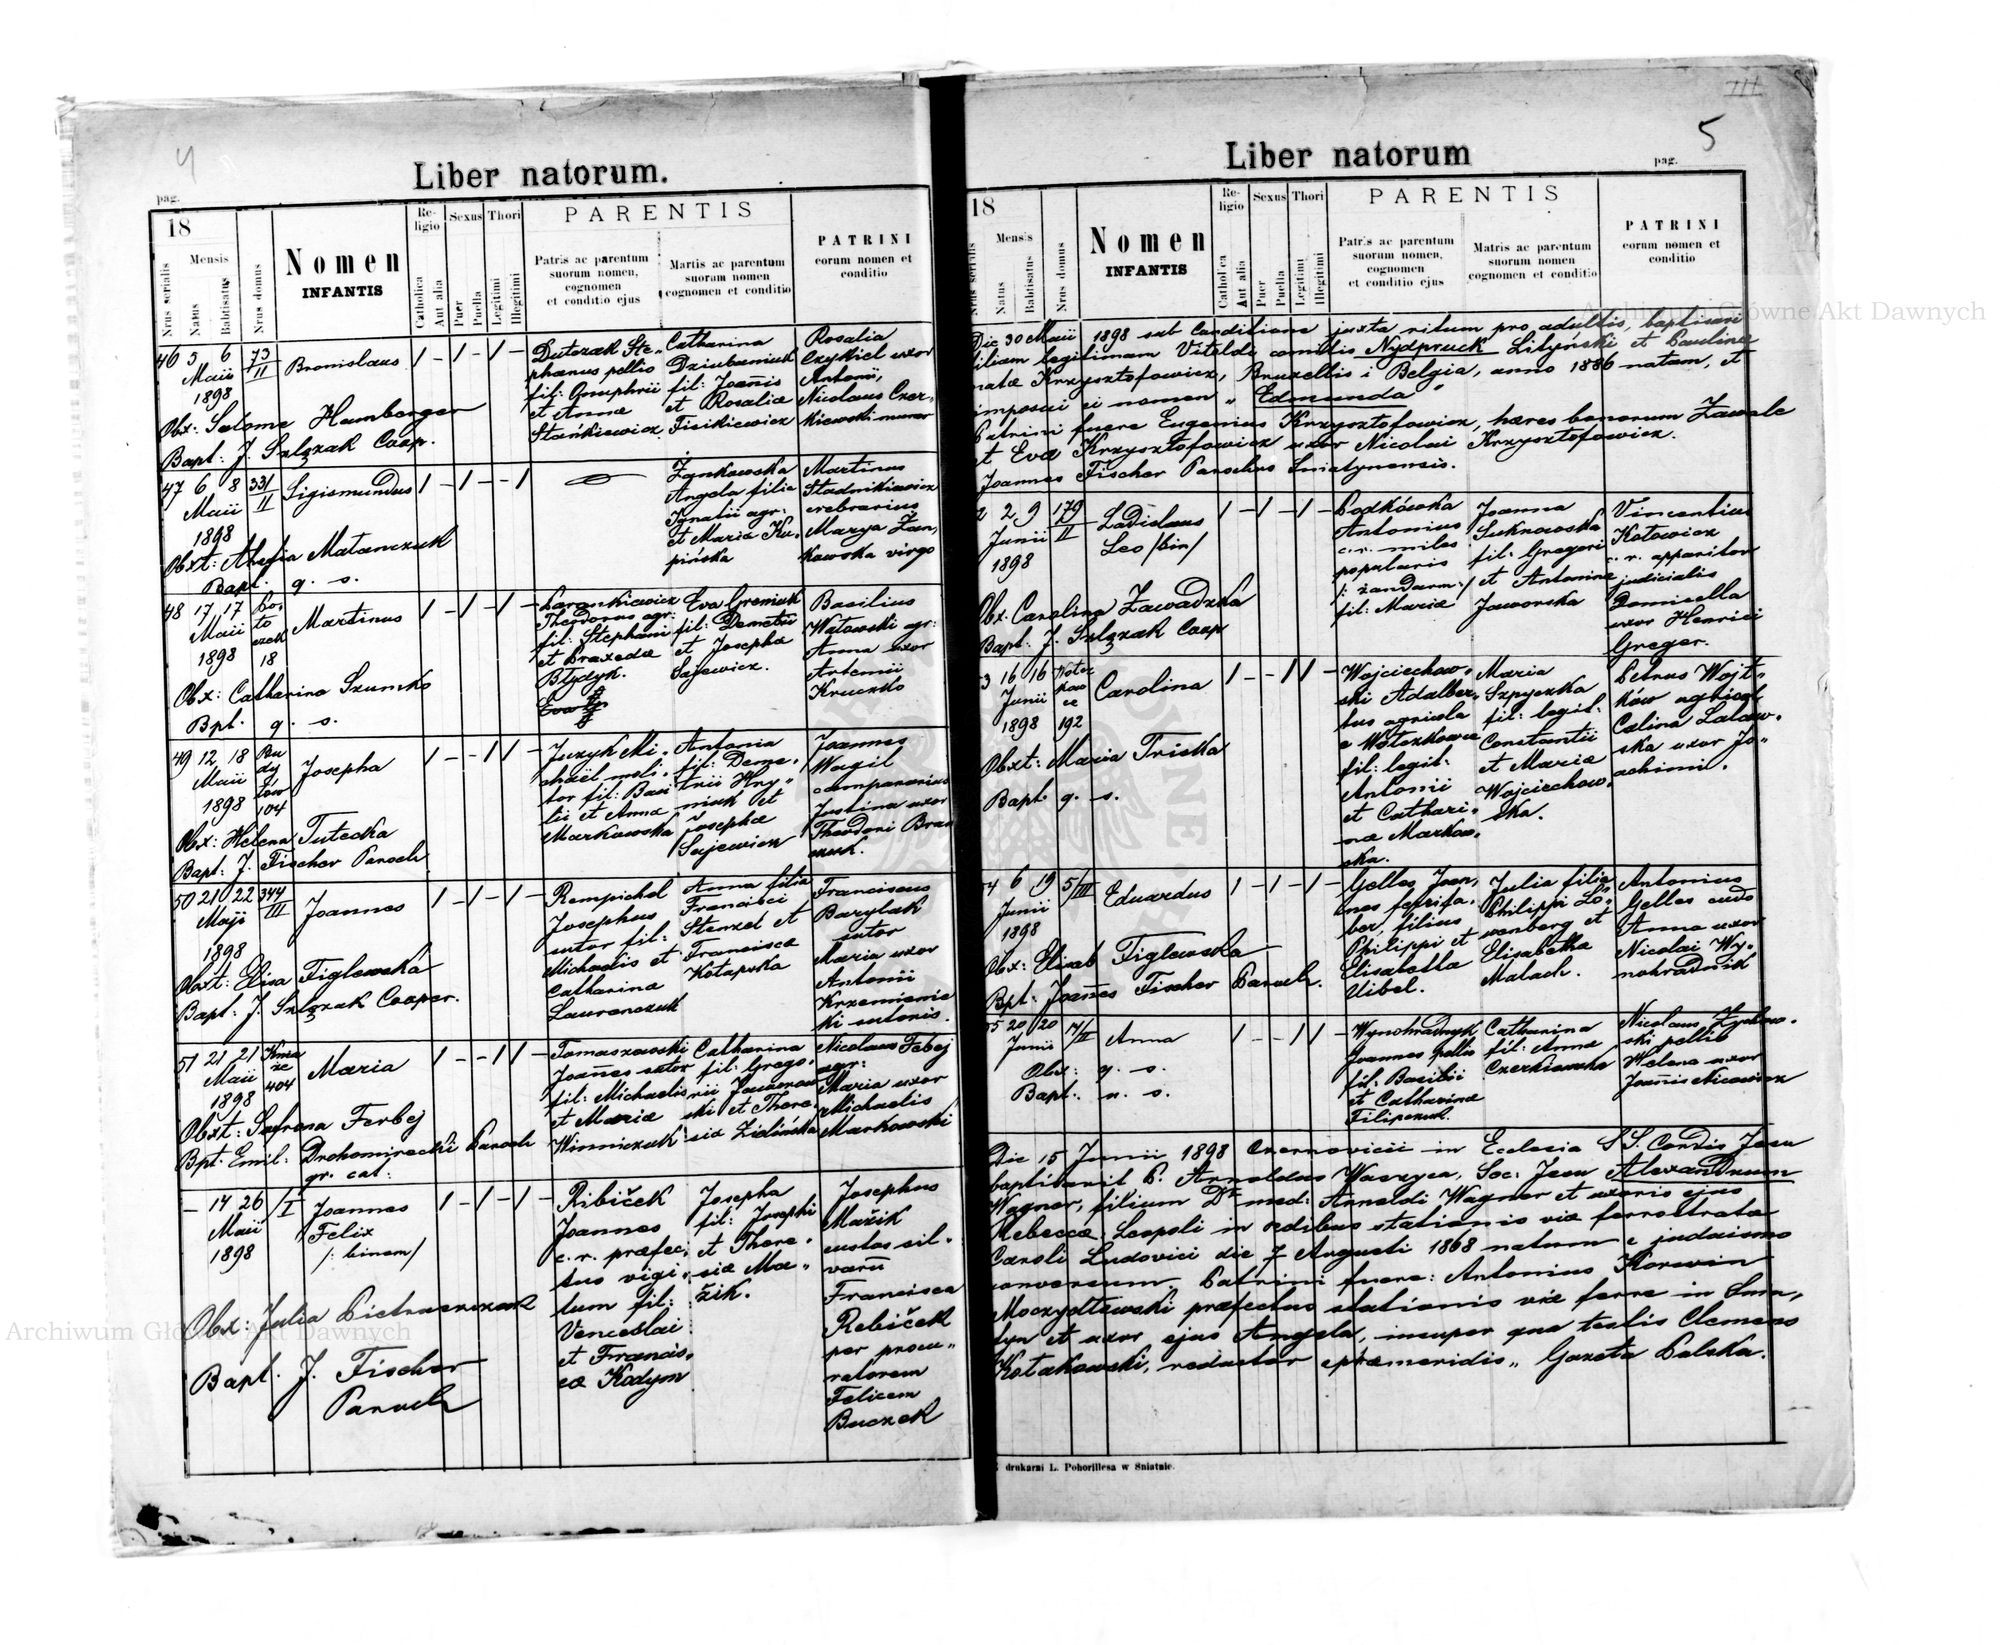 4
Liber natorum.
pag.
18
Nrus serialis
Mensis
Natus
Babtisatus
Nrus domus
Nomen
INFANTIS
Religio
Catholica
Aut alia
Sexus
Puer
Puella
Thori
Legitimi
Illegitimi
PARENTIS
Patris ac parentum
suorum nomen,
cognomen
et conditio ejus
Martis ac parentum
suorum nomen
cognomen et conditio
PATRINI
eorum nomen et
conditio
46 5 6 73/II
Maii
1898
Bronislaus
1 - 1 - 1 -
Dutczak Ste-
phanus pellio
fil: Onuphrii
et Annæ
Stańkiewicz
Catharina
Dziubaniuk
fil: Joannis
et Rosaliæ
Fisikiewicz
Rosalia
Czykiel uxor
Antonii,
Nicolaus Czer-
kiewski murar
Obx: Salome Hamberger
Bapt: J. Szlęzak Coop.
47 6 8 331/II
Maii
1898
Sigismundus
1 - 1 - - 1
Żynkowska
Angela filia
Ignatii agr:
et Mariæ Ku-
pińska
Martinus
Stadnikiewicz
crebrarius
Marya Żan-
kowska virgo
Obxt: Matanczuk
Bapt. q. s.
48 17 17 Bo-
to
czek
18
Maii
1898
Martinus
1 - 1 - 1 -
Barankiewicz
Theodorus agr.
fil: Stephani
et Praxedæ
Błydyk.
Eva Gremiuk
fil: Demetrii
et Josepha
Sajewicz.
Basilius
Watowski agr:
Anna uxor
Artemii
Kruczko
Obx: Catharina Szumko
Bpt. q. s.
49 12 18 Bu
dy
łów
104
Maii
1898
Josepha
1 - - 1 1 -
Juzyk Mi-
chaël moli-
tor fil: Basi
lii et Anna
Markowska
Antonia
fil: Deme-
trii Hry-
niuk et
Josepha
Sajewicz
Joannes
Wagil
campanarius
Justina uxor
Theodori Bran
czuk.
Obx: Helena Tutecka
Bapt: J. Fischer Paroch
50 21 22 344/III
Maji
1898
Joannes
1 - 1 - 1 -
Rempichel
Josephus
sutor fil:
Michaelis et
Catharina
Laurenczuk
Anna filia
Francisci
Stenzel et
Francisca
Kotapska
Franciscus
Barylak
sutor
Maria uxor
Antonii
Krzemienic
ki sutoris.
Obxt: Elisa Figlewska
Bapt: J. Szlęzak Cooper.
51 21 21 Knia
że
404
Maii
1898
Maria
1 - - 1 1 -
Tomaszewski
Joañes sutor
fil: Michaelis
et Mariæ
Winniczuk
Catharina
fil: Grego-
rii
ski et There
siæ Zidińska
Nicolaus Febej
agr:
Maria uxor
Michaelis
Markowski
Obxt: Ferbej
Bpt: Emil: Drohomirecki Paroch
gr. cat:
- 14 26 /I
Maii
1898
Joannes
Felix
/: binom/
1 - 1 - 1 -
Ribiček
Joannes
c. r. præfec-
tus vigi-
lum fil:
Venceslai
et Francis-
cæ Kodym
Josepha
fil: Josephi
et There-
siæ Ma-
žik.
Josephus
Mažik
custos sil-
varū
Francisca
Rebiček
per procu-
ratorem
Felicem
Buczek
Obx: Julia Pietraszczuk
Bapt. J. Fischer
Paroch
III
5
Liber natorum
pag.
18
Nrus serialis
Mensis
Natus
Babtisatus
Nrus domus
Nomen
INFANTIS
Religio
Catholica
Aut alia
Sexus
Puer
Puella
Thori
Legitimi
Illegitimi
PARENTIS
Patris ac parentum
suorum nomen,
cognomen
et conditio ejus
Matris ac parentum
suorum nomen
cognomen et conditio
PATRINI
eorum nomen et
conditio
Die 30 Maii 1898 sub conditione juxta ritum pro adultis, baptisavi
filiam legitimam Vitoldi comitis Nydpruck Lityński et Paulinæ
natæ Krzysztofowicz, Bruxellis i Belgia, anno 1886 natam, et
imposui ei nomen „Edmunda“
Patrini fuere Eugenius Krzysztofowicz, hæres bonorum Zawale
et Eva Krzysztofowicz uxor Nicolai Krzysztofowicz.
Joannes Fischer Parochus Sniatynensis.
2 2 9 179/II
Junii
1898
Ladislaus
Leo /bin/
1 - 1 - 1 -
Podkówka
Antonius
c. r. miles
popularis
/: żandarm:/
fil: Mariæ
Joanna
Suknowska
fil: Gregori
et Antoninæ
Jaworska
Vincentius
Kotowicz
c. r. apparitor
judicialis
Domicella
uxor Henrici
Greger.
Obx. Carolina Zawadzka
Bapt. J. Szlęzak Coop
3 16 16 Wołcz
kow
ce
192
Junii
1898
Carolina
1 - - 1 1 -
Wojciechow-
ski Adalber-
tus agricola
e Wołczkowce
fil: legit:
Antonii
et Cathari-
næ Markow-
ska.
Maria
Szpyczka
fil: legit:
Constantii
et Mariæ
Wojciechow-
ska.
Petrus Wojt-
ków agricol
Calina Lataw-
ska uxor Jo-
achimi.
Obxt: Maria Triska
Bapt. q. s.
4 6 19 5/III
Junii
1898
Eduardus
1 - 1 - 1 -
Gelles Joan-
nes ferrifa-
ber, filius
Philippi et
Elisabetha
Uibel.
Julia filia
Philippi Lö-
wenberg et
Elisabetha
Malach.
Antonius
Gelles cudo
Anna uxor
Nicolai Wy-
nohradnik
Obx: Elisab Figlewska
Bpt: Joañes Fischer Paroch.
5 20 20 14/II
Junii
Anna
1 - - 1 1 -
Wynohradnyk
Joannes pellio
fil: Basilii
et Catharinæ
Filipczuk.
Catharina
fil: Annæ
Czerkiawska
Nicolaus
ski pellio
Helena uxor
Joannis Nicowicz
Obx: q. s.
Bapt: u. s.
Die 15 Junii 1898 Czernovicii in Ecclesia SS. Cordis Jesu
baptisavit P. Arnoldus Waszyca, Soc: Jesu Alexandrum
Wagner, filium Dr med: Arnoldi Wagner et uxoris ejus
Rebeccæ Leopoli in ædibus stationis viæ ferrostratæ
Caroli Ludovici die 7 Augusti 1868 natum e judaismo
conversum. Patrini fuere: Antonius Korwin
Moczydłowski præfectus stationis viæ ferre in Snia-
tyn et uxor ejus Angela, insuper qua testis Clemens
Kołakowski, redactor ephemeridis „Gazeta Polska.
Z drukarni L. Pohorillesa w Sniatnie.
Archiwum Główne Akt Dawnych
Archiwum Główne Akt Dawnych